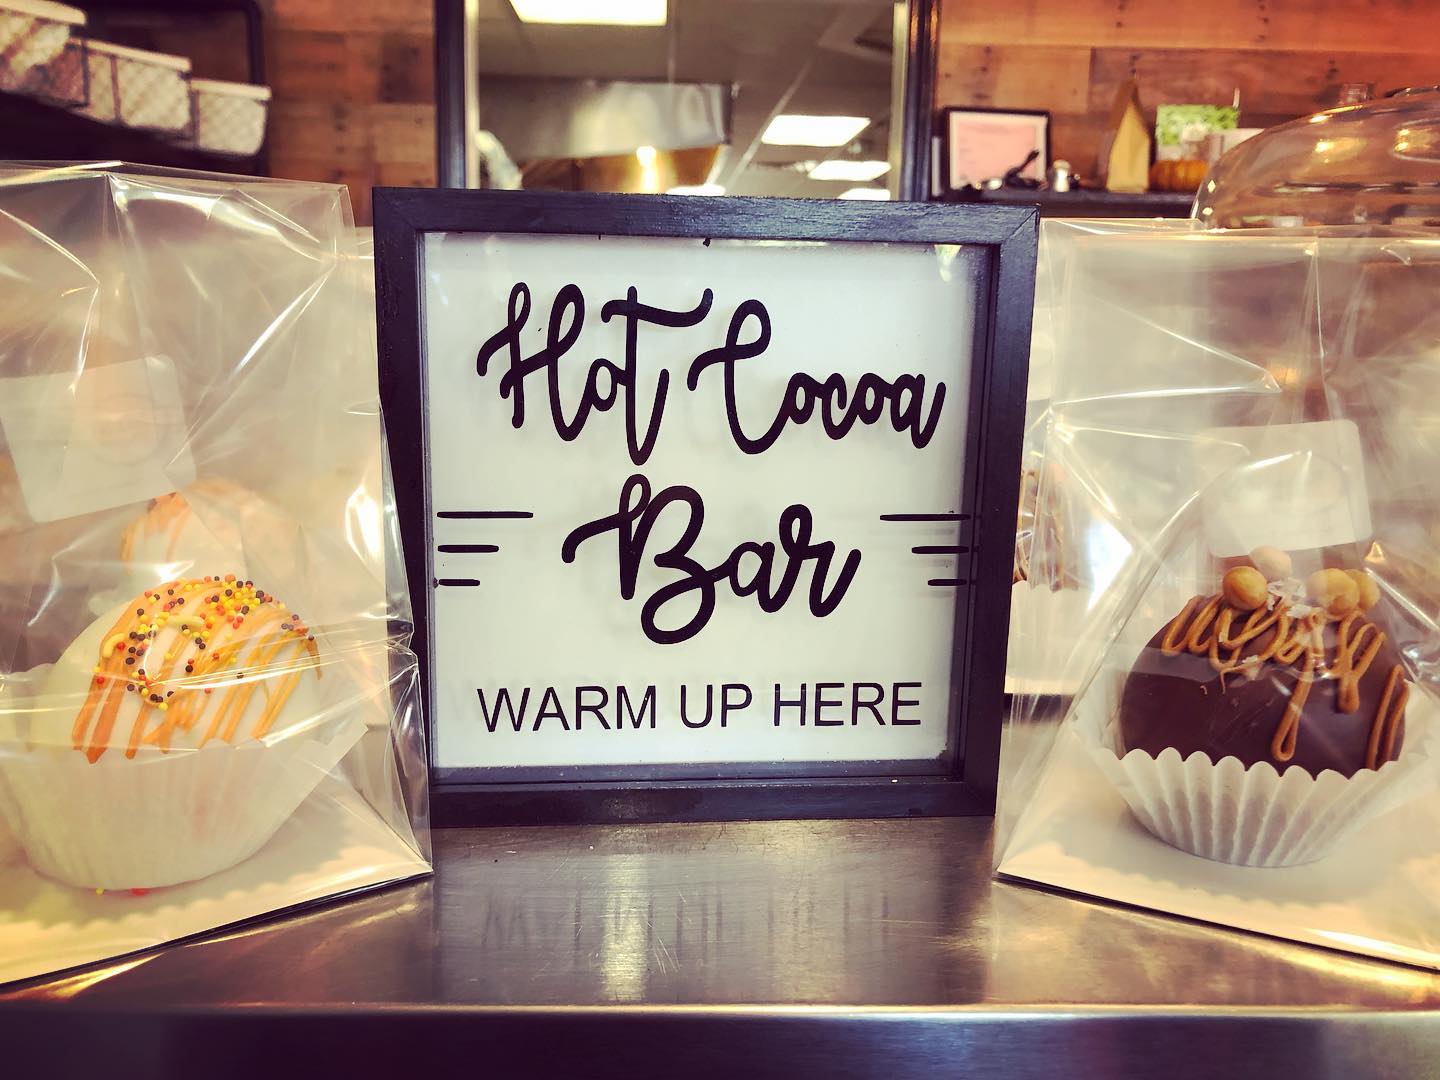 Hot Cocoa
Bar
WARM UP HERE